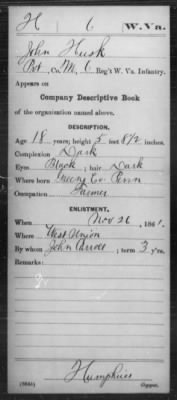 H 6 W. Va.
John Husk
Pvt., Co. M, 6 Reg't W. Va. Infantry.
Appears on
Company Descriptive Book
of the organization named above.
DESCRIPTION.
Age 18 years; height 5 feet 8 1/2 inches.
Complexion Dark
Eyes Black; hair Dark
Where born Greene Co. Penn
Occupation Farmer
ENLISTMENT.
When Nov 26, 1861.
Where West Union
By whom John ; term 3 y'rs.
Remarks:
Humphries
Copyist.